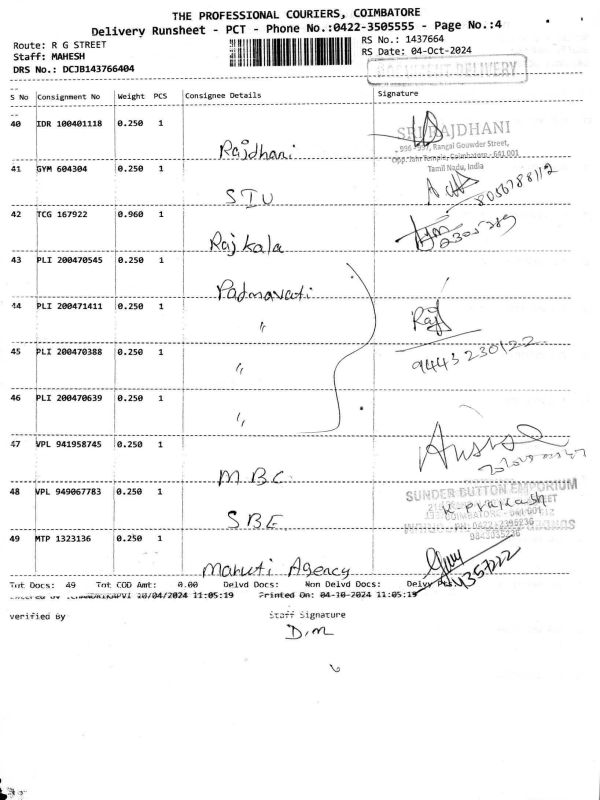 THE PROFESSIONAL COURIERS, COIMBATORE
Delivery Runsheet - PCT - Phone No.:0422-3505555 - Page No.:4
Route: R G STREET
RS No.: 1437664
Staff: MAHESH
RS Date: 04-Oct-2024
DRS No.: DCJB143766404
S No Consignment No Weight PCS Consignee Details Signature
40 IDR 100401118 0.250 1
Rajdhani
SRI RAJDHANI
996 - 997, Rangai Gowder Street,
Opp. Jain Temple, Coimbatore - 641 001
Tamil Nadu, India
41 GYM 604304 0.250 1
STU
8056788112
42 TCG 167922 0.960 1
Rajkala
43 PLI 200470545 0.250 1
Padmavati
44 PLI 200471411 0.250 1
"
Raj
9443230122
45 PLI 200470388 0.250 1
"
46 PLI 200470639 0.250 1
"
47 VPL 941958745 0.250 1
M.B.C.
48 VPL 949067783 0.250 1
SUNDER BUTTON EMPORIUM
S.B.E
K. Prakash
49 MTP 1323136 0.250 1
Maruti Agency
Tot Docs: 49 Tot COD Amt: 0.00 Delvd Docs: Non Delvd Docs:
10/04/2024 11:05:19 Printed On: 04-10-2024 11:05:19
verified By
Staff Signature
D.M